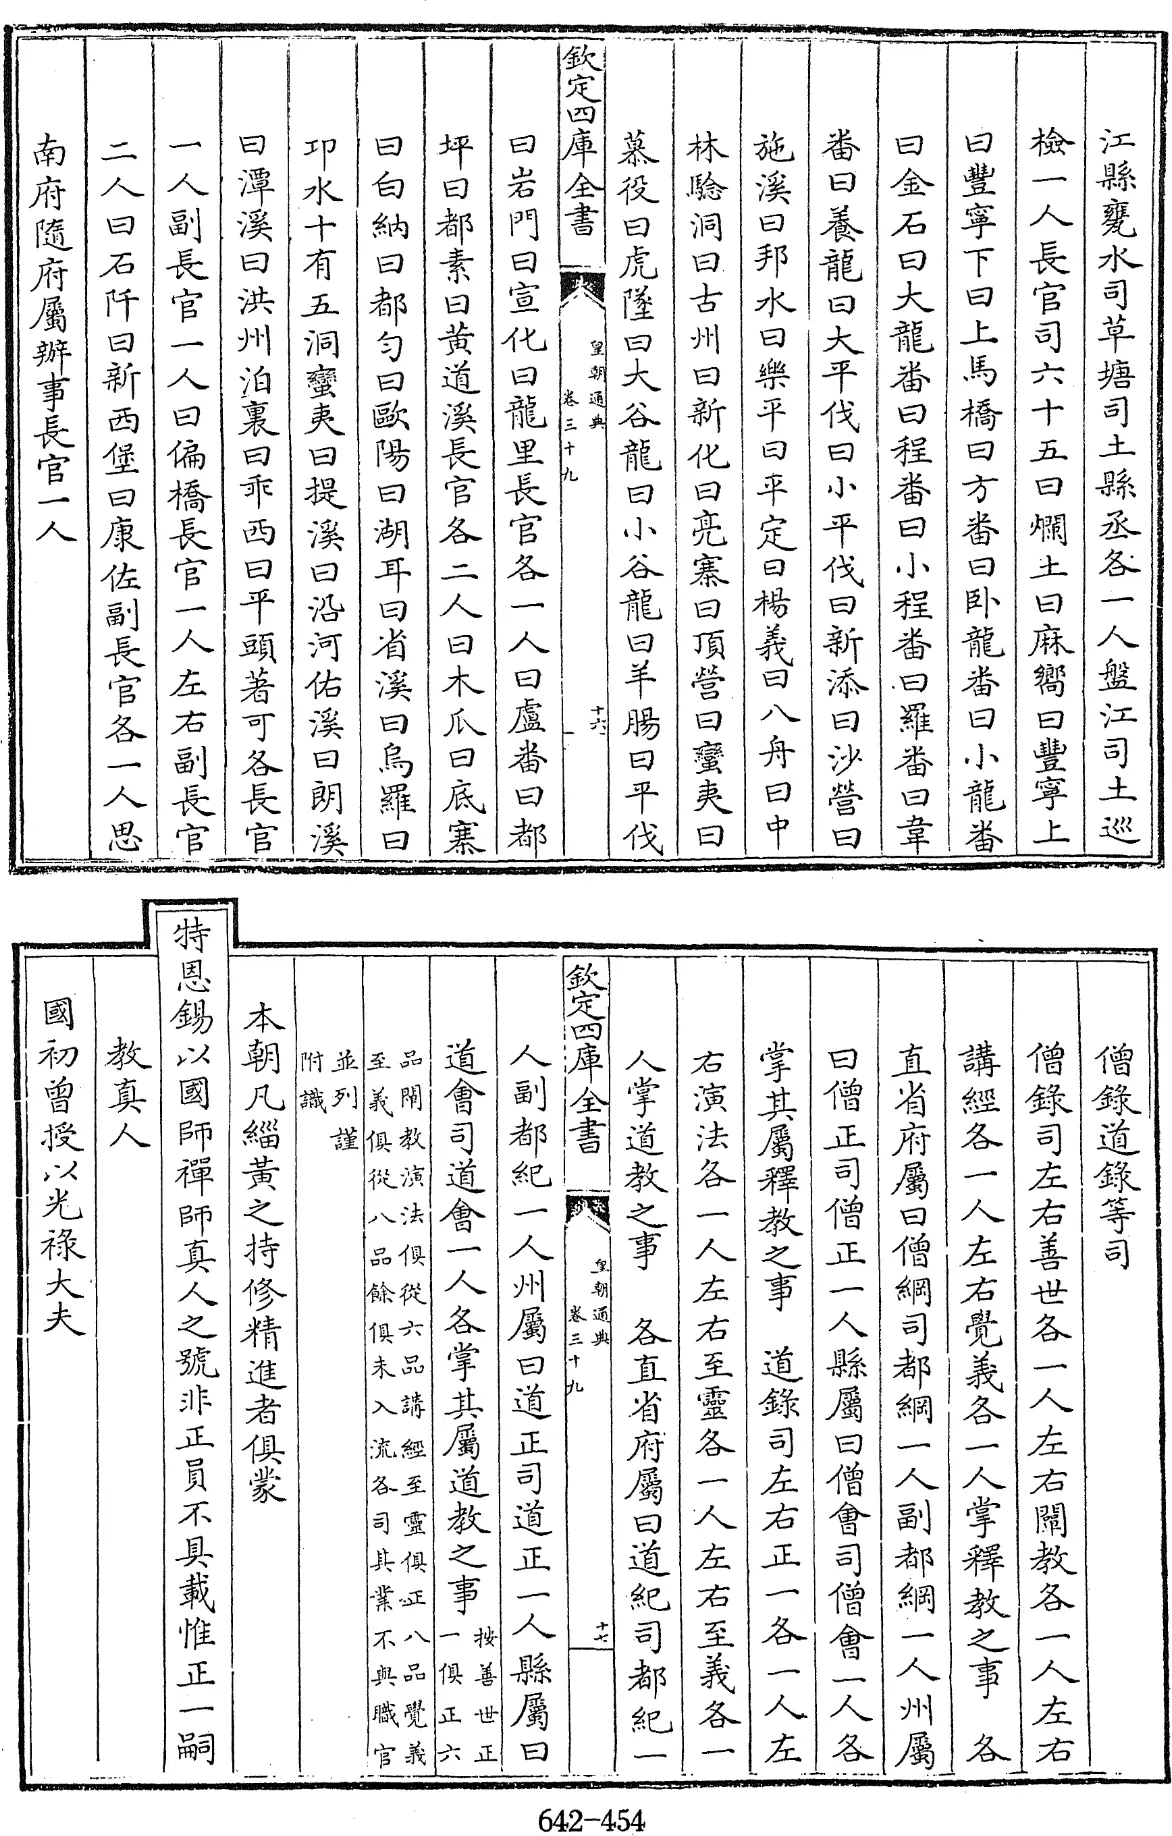 江縣甕水司草塘司土縣丞各一人盤江司土巡
檢一人長官司六十五曰爛土曰麻嚮曰豐寧上
曰豐寧下曰上馬橋曰方番曰卧龍番曰小龍番
曰金石曰大龍番曰程番曰小程番曰羅番曰韋
番曰養龍曰大平伐曰小平伐曰新添曰沙營曰
施溪曰邦水曰樂平曰平定曰楊義曰八舟曰中
林驗洞曰古州曰新化曰亮寨曰頂營曰蠻夷曰
慕役曰虎墜曰大谷龍曰小谷龍曰羊腸曰平伐
欽定四庫全書
皇朝通典
卷三十九
十六
曰岩門曰宣化曰龍里長官各一人曰盧番曰都
坪曰都素曰黃道溪長官各二人曰木瓜曰底寨
曰白納曰都勻曰歐陽曰湖耳曰省溪曰烏羅曰
卭水十有五洞蠻夷曰提溪曰沿河佑溪曰朗溪
曰潭溪曰洪州泊裏曰乖西曰平頭著可各長官
一人副長官一人曰偏橋長官一人左右副長官
二人曰石阡曰新西堡曰康佐副長官各一人思
南府隨府屬辦事長官一人
僧錄道錄等司
僧錄司左右善世各一人左右闡教各一人左右
講經各一人左右覺義各一人掌釋教之事　各
直省府屬曰僧綱司都綱一人副都綱一人州屬
曰僧正司僧正一人縣屬曰僧會司僧會一人各
掌其屬釋教之事　道錄司左右正一各一人左
右演法各一人左右至靈各一人左右至義各一
人掌道教之事　各直省府屬曰道紀司都紀一
欽定四庫全書
皇朝通典
卷三十九
十七
人副都紀一人州屬曰道正司道正一人縣屬曰
道會司道會一人各掌其屬道教之事
按善世正
一俱正六
品闡教演法俱從六品講經至靈俱正八品覺義
至義俱從八品餘俱未入流各司其業不與職官
並列謹
附識
本朝凡緇黃之持修精進者俱蒙
特恩錫以國師禪師真人之號非正員不具載惟正一嗣
教真人
國初曾授以光祿大夫
642-454